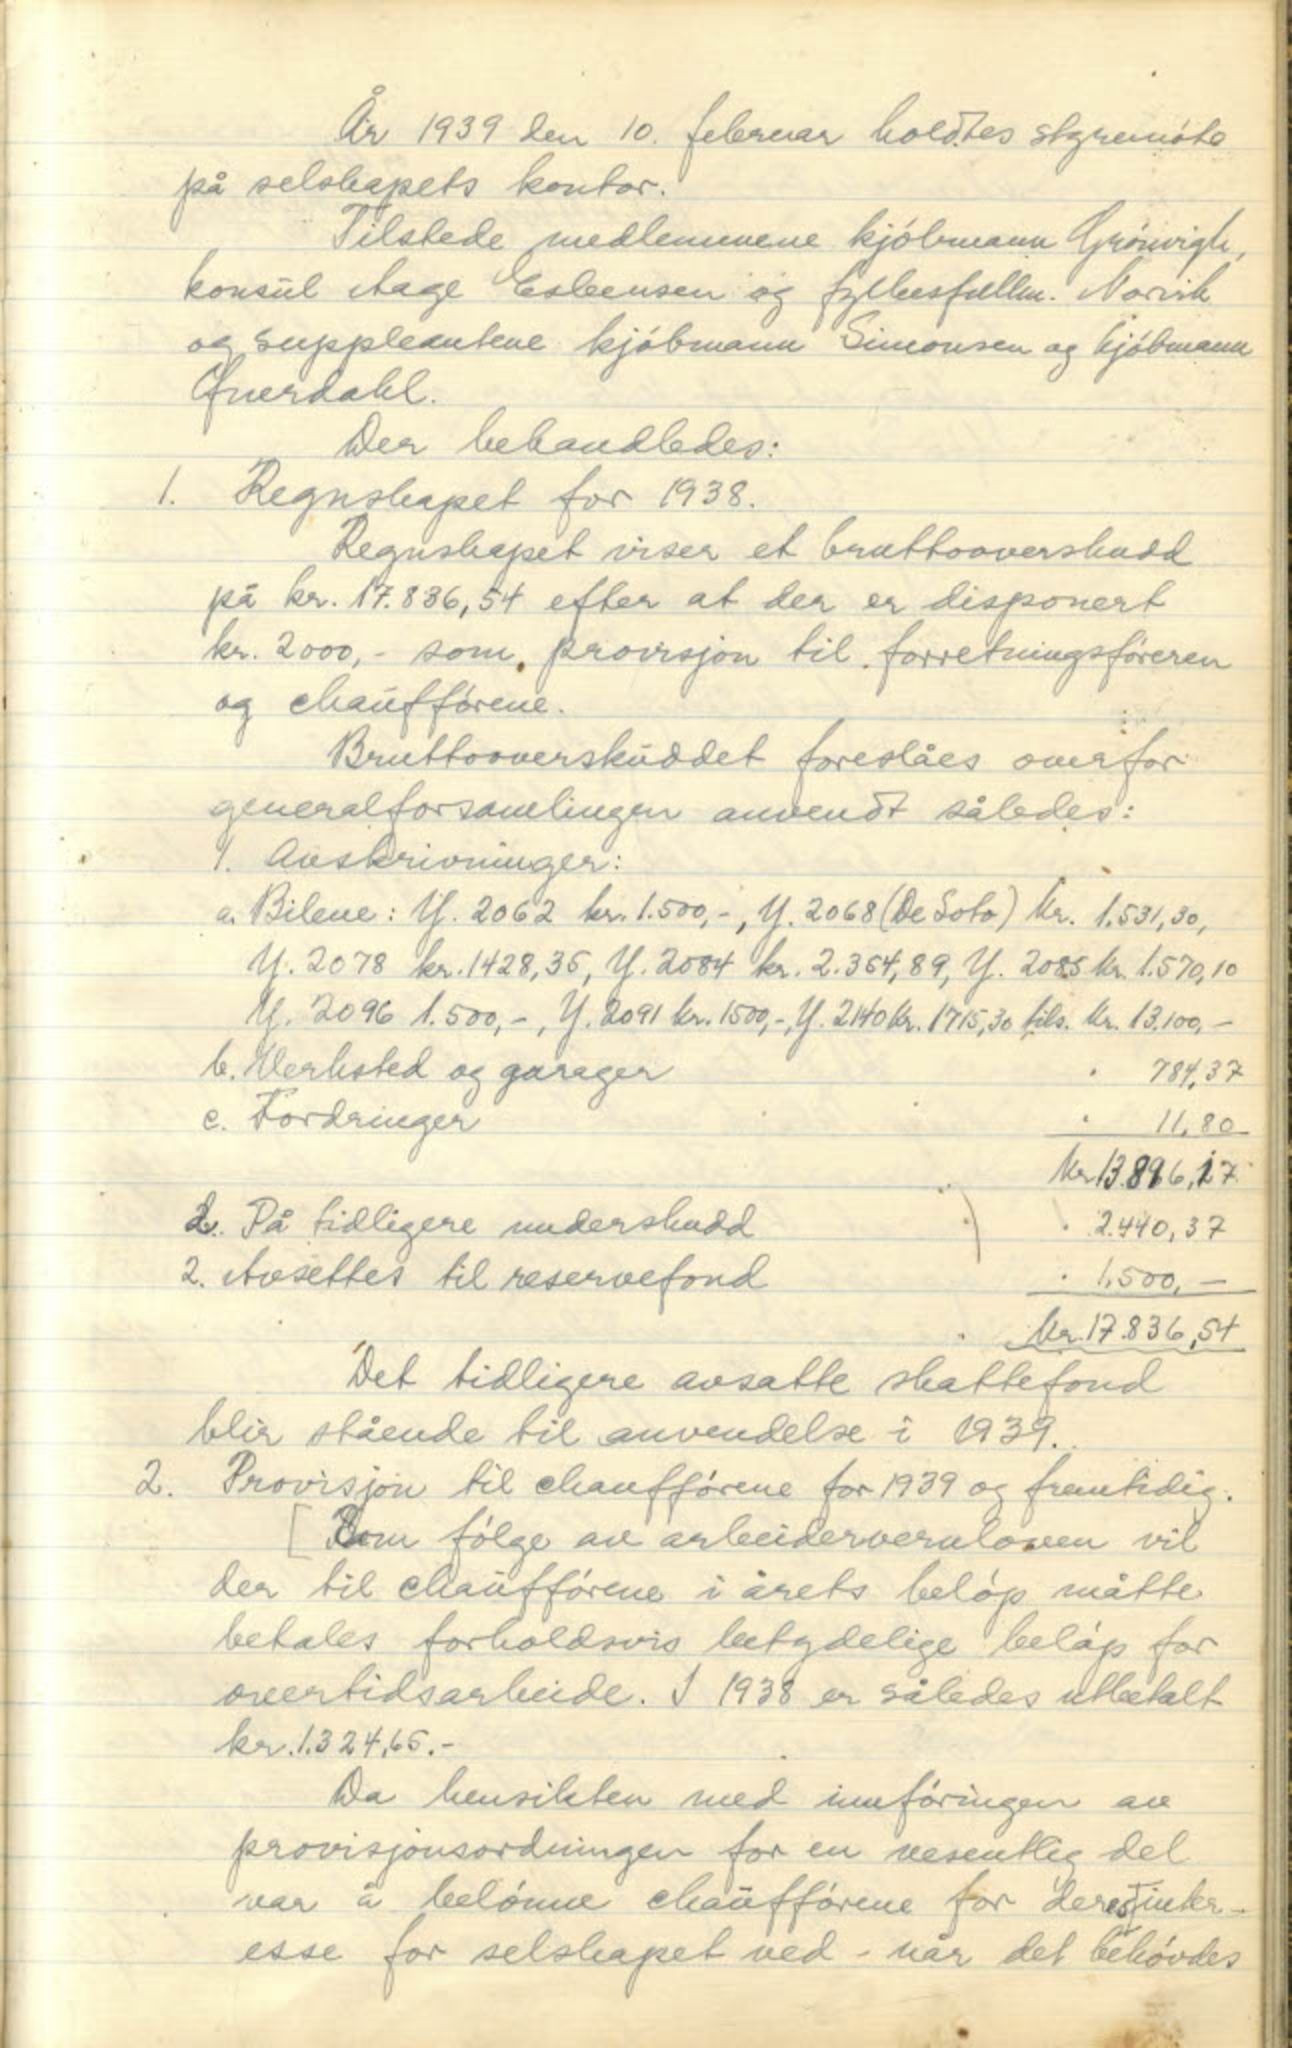 År 1939 den 10. februar holdtes styremöte
på selskapets kontor.
Tilstede medlemmene kjöbmann Grönvigh,
konsul Aage Esbensen og fylkesfullm. Norvik
og suppleantene kjöbmann Simonsen og kjöbmann
Qverdahl.
Der behandledes:
1. Regnskapet for 1938.
Regnskapet viser et bruttooverskudd
på kr. 17.836,54 efter at der er disponert
kr. 2000,- som provisjon til forretningsföreren
og chaufförene.
Bruttooverskuddet foreslåes overfor
generalforsamlingen anvendt således:
1. Avskrivninger:
a. Bilene: Y. 2062 kr. 1.500,-, Y. 2068 (De Soto) kr. 1.531,30,
Y. 2078 kr. 1428,35, Y. 2084 kr. 2.354,89, Y. 2085 kr. 1.570,10
Y. 2096 1.500,-, Y. 2091 kr. 1500,-, Y. 2140 kr. 1715,30 tils. kr. 13.100,-
b. Verksted og garager " 784,37
c. Fordringer " 11,80
kr. 13.896,17
2. På tidligere underskudd " 2.440,37
2. Avsettes til reservefond " 1.500,-
kr. 17.836,54
Det tidligere avsatte skattefond
blir stående til anvendelse i 1939.
2. Provisjon til chaufförene for 1939 og fremtidig.
[Som fölge av arbeidervernloven vil
der til chaufförene i årets belöp måtte
betales forholdsvis betydelige belöp for
overtidsarbeide. I 1938 er således utbetalt
kr. 1.324,65.-
Da hensikten med innföringen av
provisjonsordningen for en vesentlig del
var å belönne chaufförene for deres inter-
esse for selskapet ved - når det behövdes